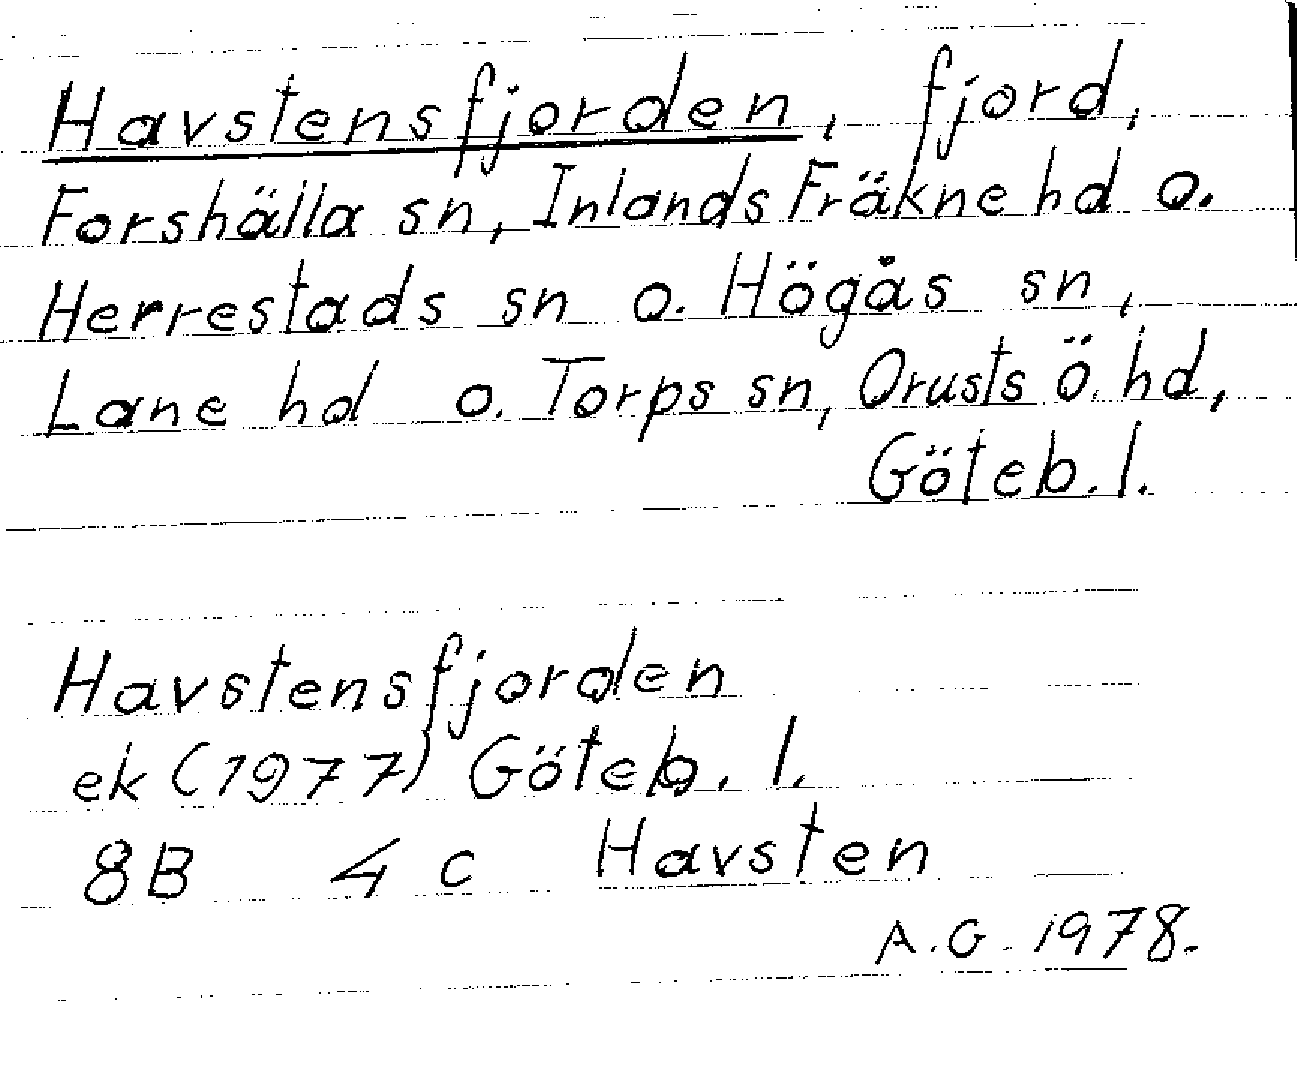 Havstensfjorden, fjord,
Forshälla sn, Inlands Fräkne hd o.
Herrestads sn o. Högås sn,
Lane hd o. Torps sn, Orusts Ö. hd,
Göteb. l.
Havstensfjorden
ek (1977) Göteb. l.
8B 4 c Havsten
A.G. 1978.